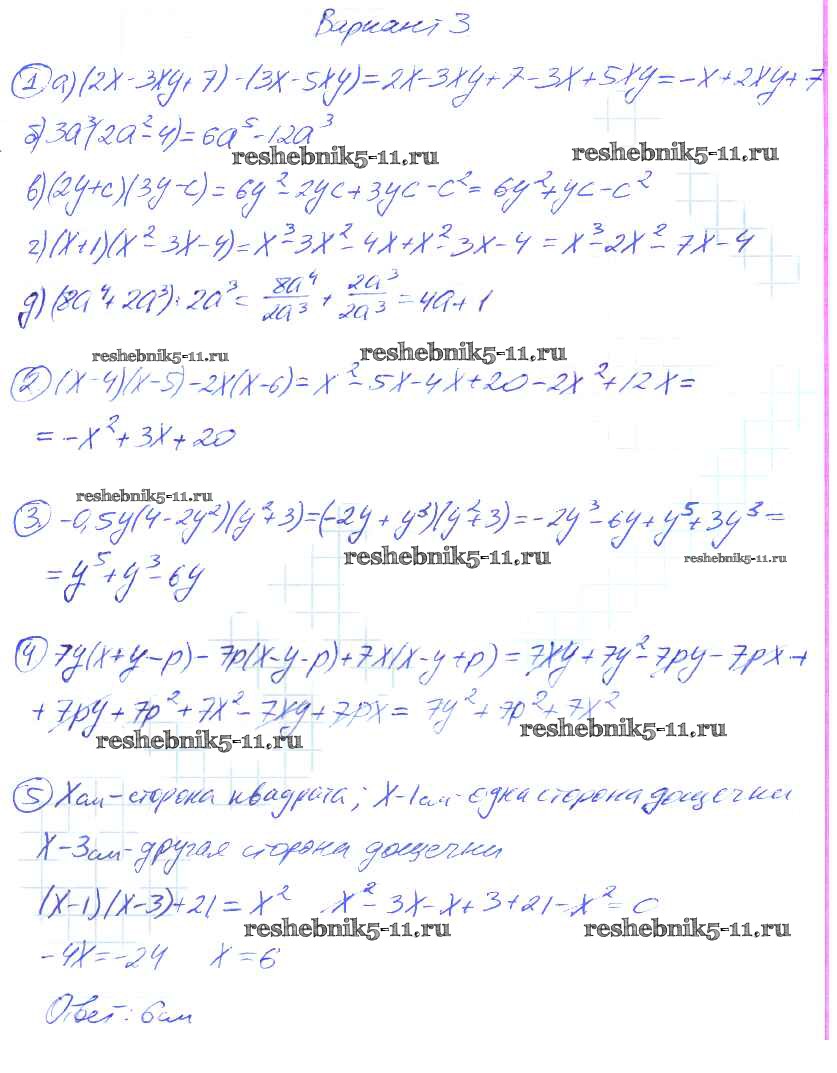 Вариант 3
① а) (2x - 3xy + 7) - (3x - 5xy) = 2x - 3xy + 7 - 3x + 5xy = -x + 2xy + 7
б) 3a³(2a² - 4) = 6a⁵ - 12a³
reshebnik5-11.ru reshebnik5-11.ru
в) (2y + c)(3y - c) = 6y² - 2yc + 3yc - c² = 6y² + yc - c²
г) (x + 1)(x² - 3x - 4) = x³ - 3x² - 4x + x² - 3x - 4 = x³ - 2x² - 7x - 4
д) (8a⁴ + 2a³) : 2a³ = 8a⁴/2a³ + 2a³/2a³ = 4a + 1
reshebnik5-11.ru reshebnik5-11.ru
② (x - 4)(x - 5) - 2x(x - 6) = x² - 5x - 4x + 20 - 2x² + 12x =
= -x² + 3x + 20
reshebnik5-11.ru
③. -0,5y(4 - 2y²)(y² + 3) = (-2y + y³)(y² + 3) = -2y³ - 6y + y⁵ + 3y³ =
reshebnik5-11.ru reshebnik5-11.ru
= y⁵ + y³ - 6y
④ 7y(x + y - p) - 7p(x - y - p) + 7x(x - y + p) = 7xy + 7y² - 7py - 7px +
+ 7py + 7p² + 7x² - 7xy + 7px = 7y² + 7p² + 7x²
reshebnik5-11.ru reshebnik5-11.ru
⑤ x см - сторона квадрата; x - 1 см - одна сторона дощечки
x - 3 см - другая сторона дощечки
(x - 1)(x - 3) + 21 = x² x² - 3x - x + 3 + 21 - x² = 0
reshebnik5-11.ru reshebnik5-11.ru
-4x = -24 x = 6
Ответ: 6 см